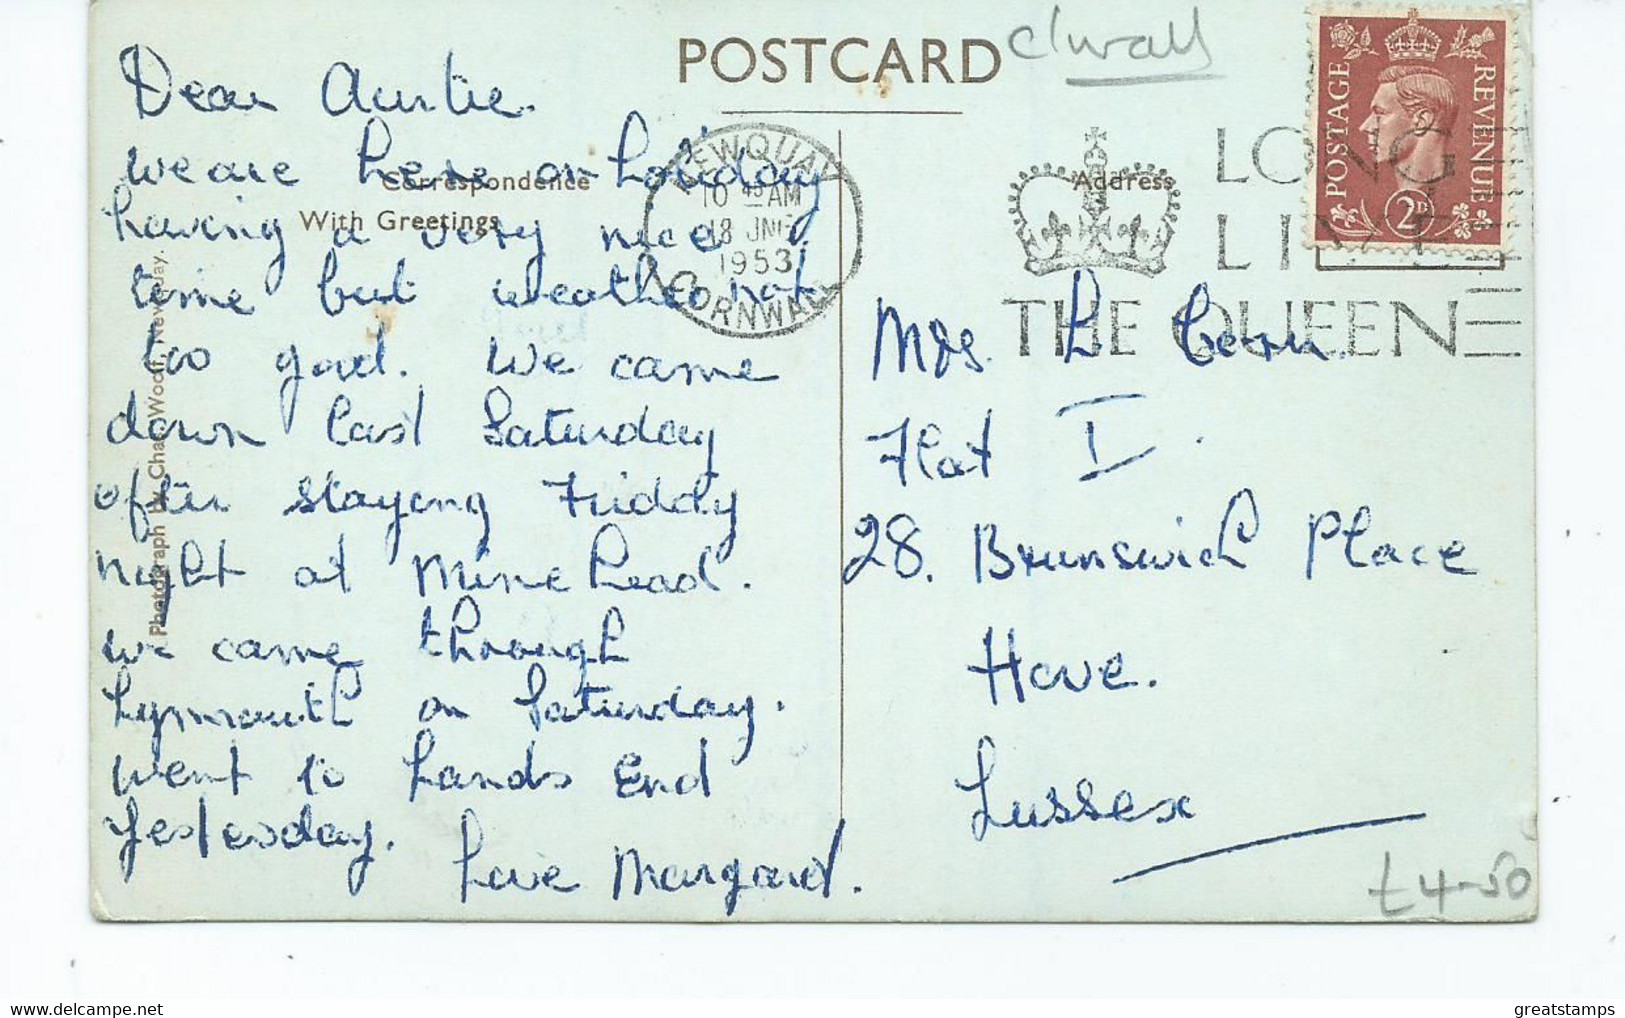 POSTCARD
C/wall
Dear Auntie.
we are here on holiday
having a very nice
time but weather not
too good. We came
down last Saturday
after staying Friday
night at Minehead.
we came through
Lynmouth on Saturday.
went to Lands End
yesterday.
Love Margaret.
Correspondence
With Greetings
Photograph by Chas. Woolf, Newquay.
NEWQUAY
10 45 AM
18 JNE
1953
CORNWALL
Address
LONG
LIVE
THE QUEEN
POSTAGE
REVENUE
2D
Mrs. L
Flat I.
28. Brunswick Place
Hove.
Sussex
£4-50
greatstamps